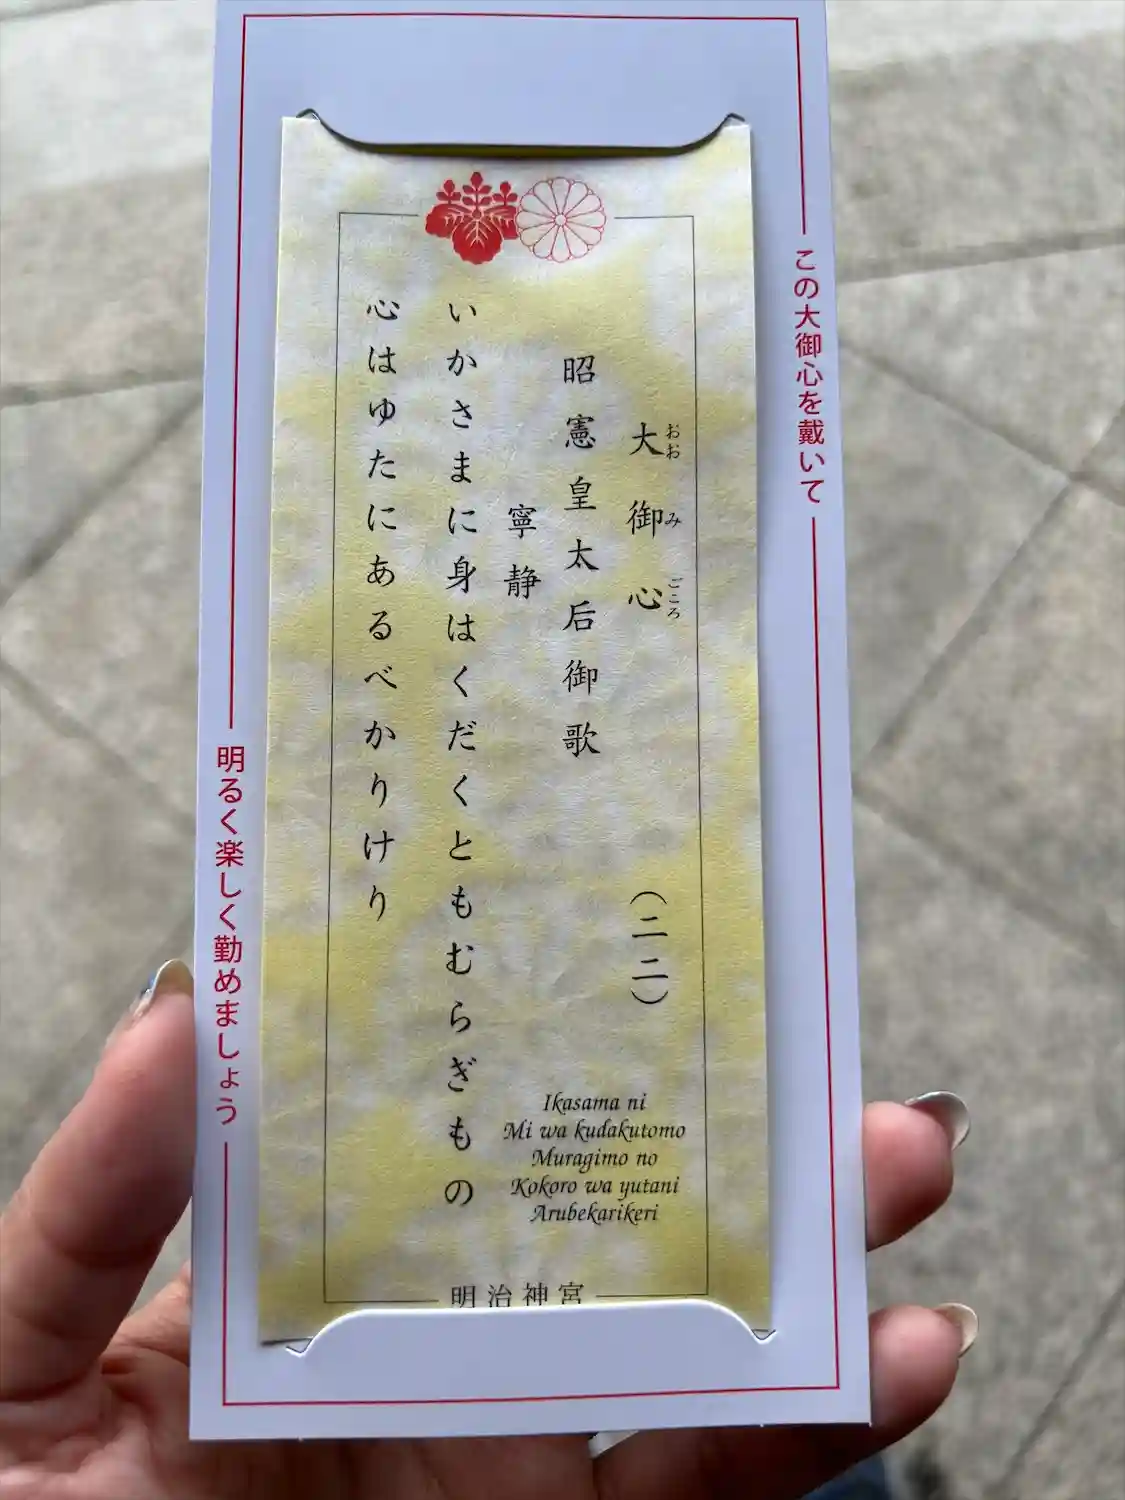 この大御心を戴いて
大御心 (二二)
おおみごころ
昭憲皇太后御歌
寧静
いかさまに身はくだくともむらぎもの
心はゆたにあるべかりけり
Ikasama ni
Mi wa kudakutomo
Muragimo no
Kokoro wa yutani
Arubekarikeri
明治神宮
明るく楽しく勤めましょう